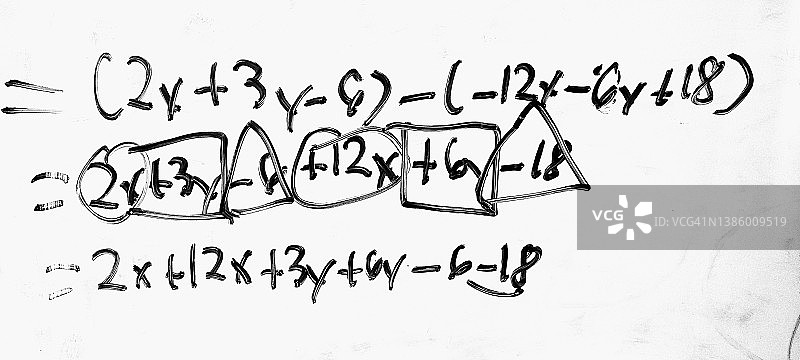 = (2x + 3y - 6) - (-12x - 6y + 18)
= 2x + 3y - 6 + 12x + 6y - 18
VCG ID: VCG41N1386009519
= 2x + 12x + 3y + 6y - 6 - 18